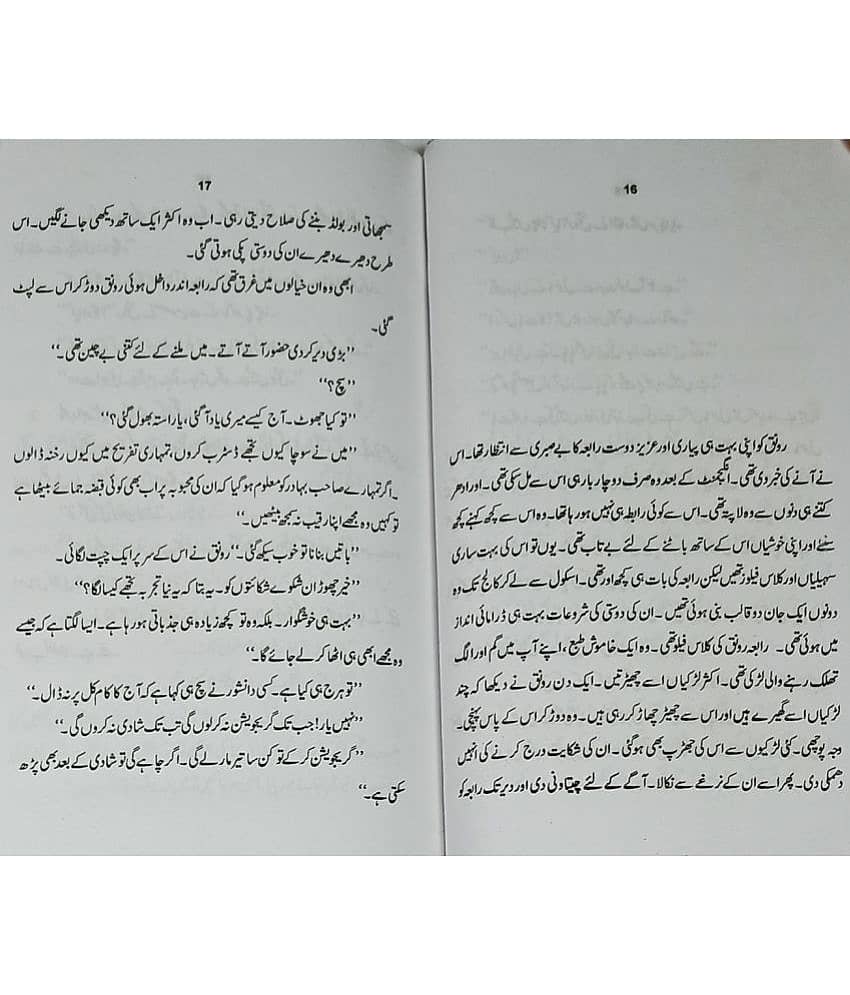 16
رونق کو اپنی بہت ہی پیاری اور عزیز دوست رابعہ کا بے صبری سے انتظار تھا۔ اس
نے آنے کی خبر دی تھی۔ انگیجمنٹ کے بعد وہ صرف دو چار بار ہی اس سے مل سکی تھی۔ اور ادھر
کتنے ہی دنوں سے وہ لاپتہ تھی۔ اس سے کوئی رابطہ ہی نہیں ہو رہا تھا۔ وہ اس سے کچھ کہنے کچھ
سننے اور اپنی خوشیاں اس کے ساتھ بانٹنے کے لئے بے تاب تھی۔ یوں تو اس کی بہت ساری
سہیلیاں اور کلاس فیلوز تھیں لیکن رابعہ کی بات ہی کچھ اور تھی۔ اسکول سے لے کر کالج تک وہ
دونوں ایک جان دو قالب بنی ہوئی تھیں۔ ان کی دوستی کی شروعات بہت ہی ڈرامائی انداز
میں ہوئی تھی۔ رابعہ رونق کی کلاس فیلو تھی۔ وہ ایک خاموش طبع، اپنے آپ میں گم اور الگ
تھلگ رہنے والی لڑکی تھی۔ اکثر لڑکیاں اسے چھیڑتیں۔ ایک دن رونق نے دیکھا کہ چند
لڑکیاں اسے گھیرے ہیں اور اس سے چھیڑ چھاڑ کر رہی ہیں۔ وہ دوڑ کر اس کے پاس پہنچی۔
وجہ پوچھی۔ کئی لڑکیوں سے اس کی جھڑپ بھی ہو گئی۔ ان کی شکایت درج کرنے کی انہیں
دھمکی دی۔ پھر اسے ان کے نرغے سے نکالا۔ آگے کے لئے چیتاونی دی اور دیر تک رابعہ کو
17
سمجھاتی اور بولڈ بننے کی صلاح دیتی رہی۔ اب وہ اکثر ایک ساتھ دیکھی جانے لگیں۔ اس
طرح دھیرے دھیرے ان کی دوستی پکی ہوتی گئی۔
ابھی وہ ان خیالوں میں غرق تھی کہ رابعہ اندر داخل ہوئی رونق دوڑ کر اس سے لپٹ
گئی۔
’’بڑی دیر کر دی حضور آتے آتے۔ میں ملنے کے لئے کتنی بے چین تھی۔‘‘
’’سچ؟‘‘
’’تو کیا جھوٹ۔ آج کیسے میری یاد آ گئی، یا راستہ بھول گئی؟‘‘
’’میں نے سوچا کیوں تجھے ڈسٹرب کروں، تمہاری تفریح میں کیوں رخنہ ڈالوں
۔اگر تمہارے صاحب بہادر کو معلوم ہو گیا کہ ان کی محبوبہ پر اب بھی کوئی قبضہ جمائے بیٹھا ہے
تو کہیں وہ مجھے اپنا رقیب نہ سمجھ بیٹھیں۔‘‘
’’باتیں بنانا تو خوب سیکھ گئی۔‘‘ رونق نے اس کے سر پر ایک چپت لگائی۔
’’خیر چھوڑ ان شکوے شکائتوں کو۔ یہ بتا کہ یہ نیا تجربہ تجھے کیسا لگا؟‘‘
’’بہت ہی خوشگوار۔ بلکہ وہ تو کچھ زیادہ ہی جذباتی ہو رہا ہے۔ ایسا لگتا ہے کہ جیسے
وہ مجھے ابھی ہی اٹھا کر لے جائے گا۔‘‘
’’تو ہرج ہی کیا ہے۔ کسی دانشور نے سچ ہی کہا ہے کہ آج کا کام کل پر نہ ڈال۔‘‘
’’نہیں یار! جب تک گریجویشن نہ کر لوں گی تب تک شادی نہ کروں گی۔‘‘
’’گریجویشن کر کے تو کون سا تیر مار لے گی۔ اگر چاہے گی تو شادی کے بعد بھی پڑھ
سکتی ہے۔‘‘